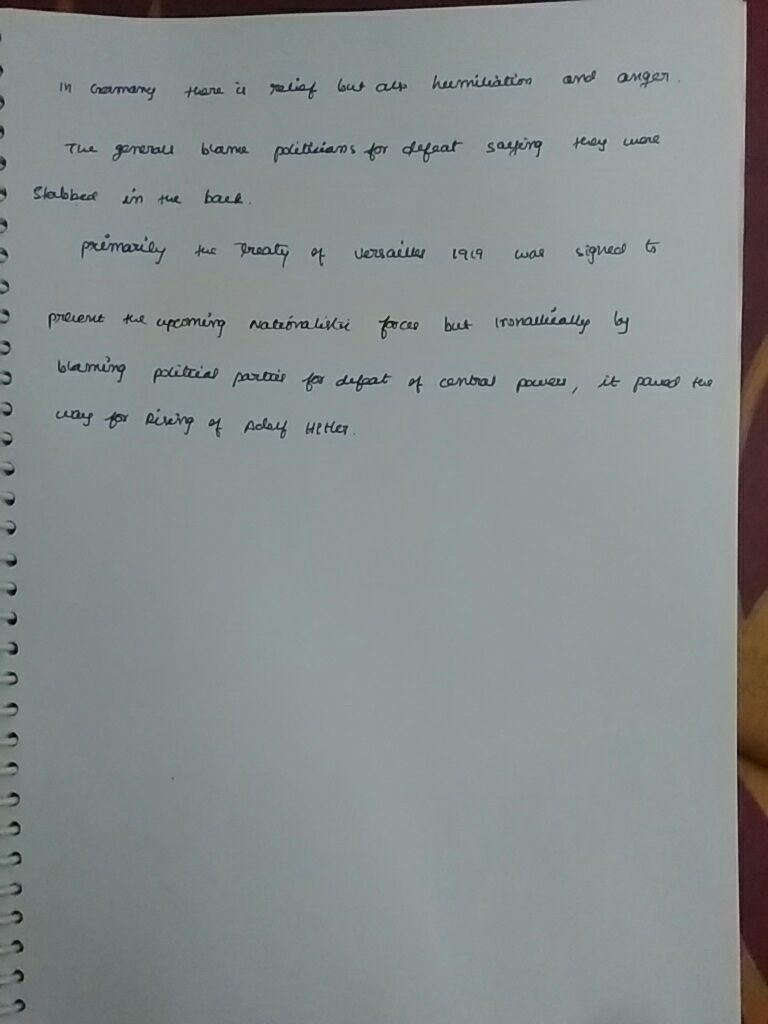 In Germany there is relief but also humiliation and anger.
The generals blame politicians for defeat saying they were
Stabbed in the back.
primarily the Treaty of Versailles 1919 was signed to
prevent the upcoming Nationalistic forces but Ironatically by
blaming political parties for defeat of central powers, it paved the
way for Rising of Adolf Hitler.